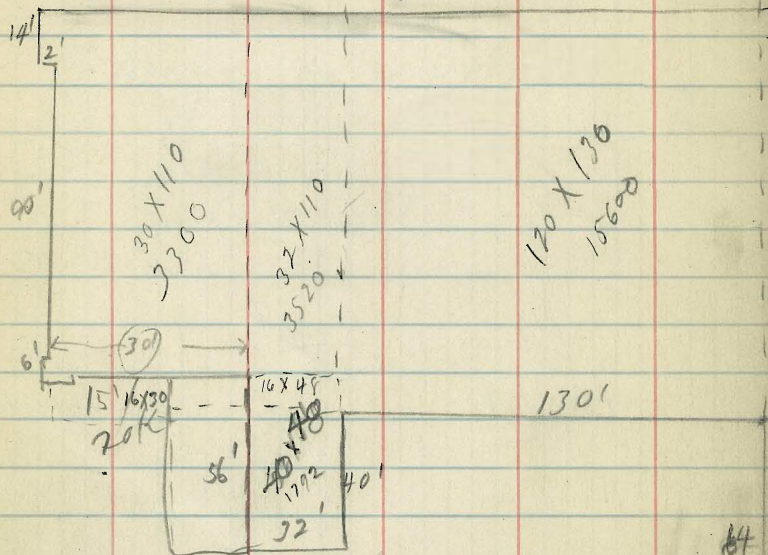 14'
2'
90'
30 X 110
3300
32 X 110
3520
120 X 130
15600
6'
30'
15'
16X30
16 X 48
130'
56'
40 X 48
1792
40'
32'
64